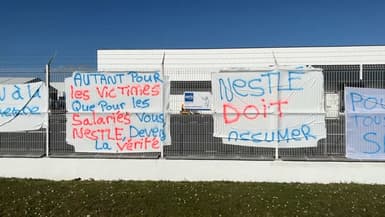 U à la
AUTANT POUR
les VICTIMES
Que Pour les
Salariés Vous
NESTLE, Devez
La Vérité
NESTLÉ
DOIT
ASSUMER